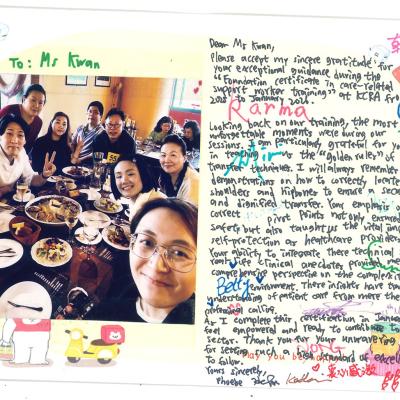 To: Ms Kwan
Dear Ms Kwan,
Please accept my sincere gratitude for
your exceptional guidance during the
"Foundation certificate in care-related
support worker training" at KCRA from
to January
Karma
Looking back on our training, the most
unforgettable moments were during our
sessions. particularly grateful for your
in teaching the "golden rules" of
transfer techniques. I will always remember
demonstrations on how to correctly locate
shoulders and hipbones to ensure a secure
and dignified transfer. Your emphasis
correct pivot points not only ensured
safety but also taught us the vital
self-protection as healthcare providers.
Your ability to integrate these technical
real-life clinical anecdotes provided
comprehensive perspective on the complexity
Betty environment. These insights have
understanding of patient care from mere
calling.
As I complete this certification in January
feel empowered and ready to contribute to
sector. Thank you for your unwavering
for setting such a high standard of excellence
to follow.
Yours sincerely,
Phoebe